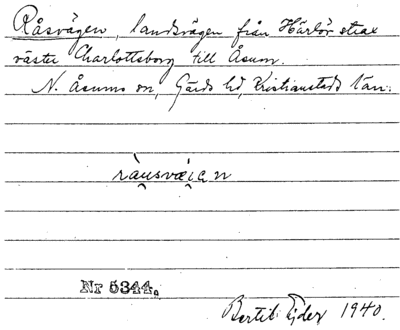 Råsvägen, landsvägen från Härlöv strax
väster Charlottsborg till Åsum.
N. Åsums sn, Gärds hd, Kristianstads län.
ràu̯svæi̯ən
Nr 5344.
Bertil Ejder 1940.